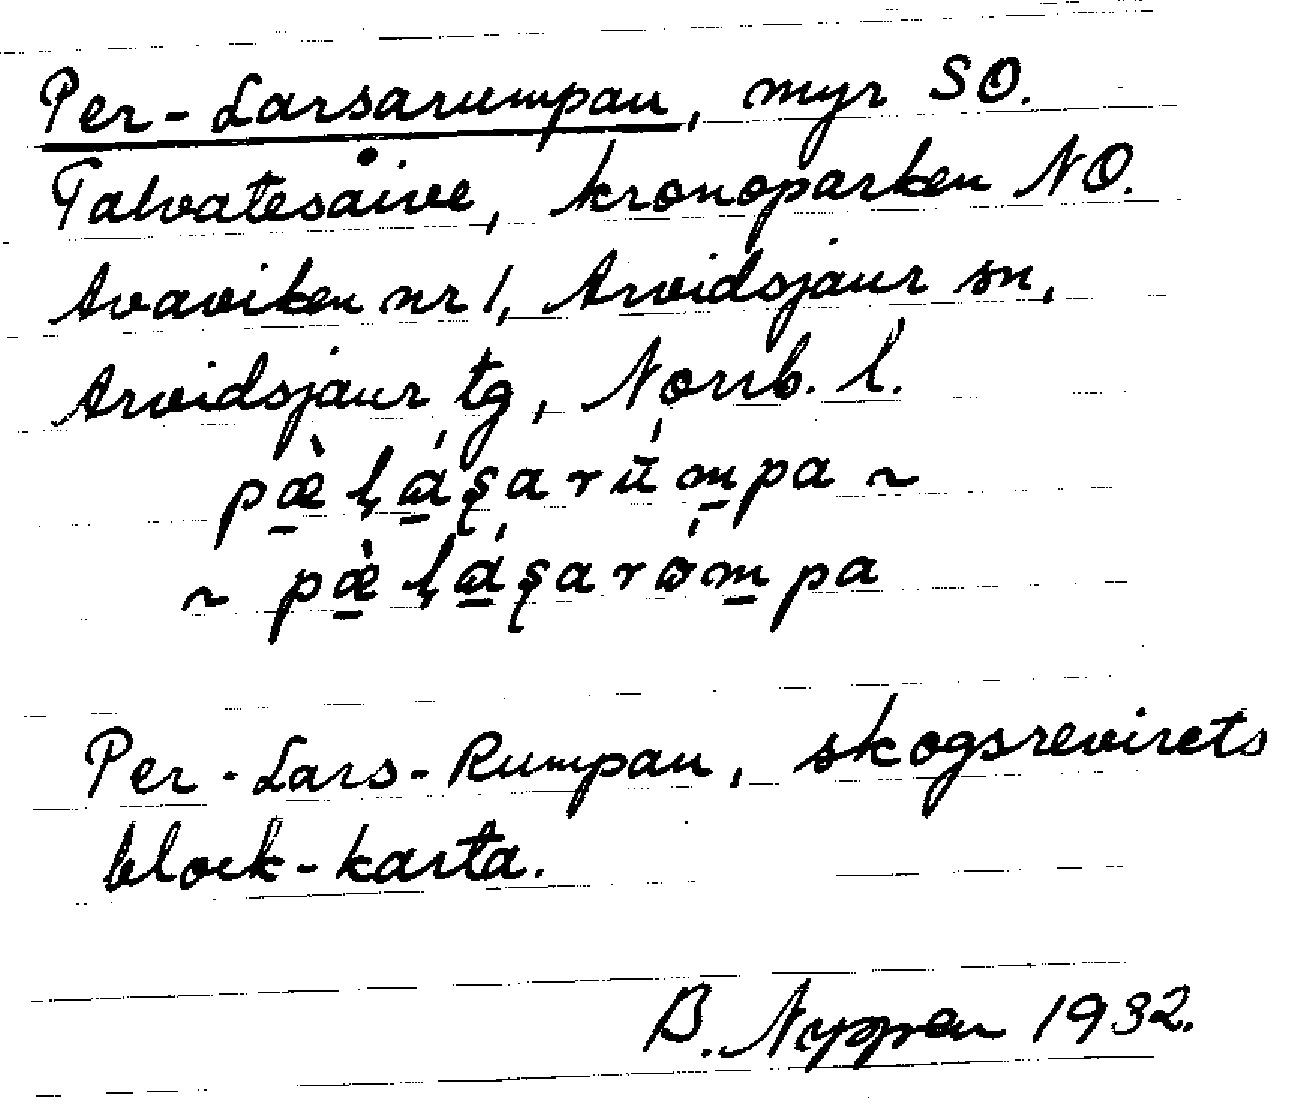 Per-Larsarumpan, myr SO.
Talvatesåive, kronoparken NO.
Avaviken nr 1, Arvidsjaur sn,
Arvidsjaur tg, Norrb. l.
Per-Lars-Rumpan, skogsrevirets
block-karta.
B. 1932.